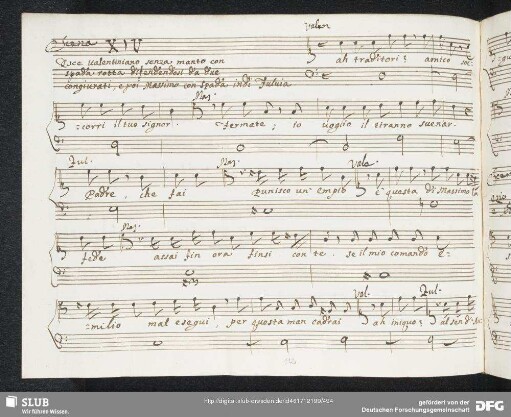 Scena XIV
Valen
Esce Valentiniano senza manto con
spada rotta difendendosi da due
congiurati, e poi Massimo con spada. indi Fulvia
ah traditori! amico soc-
Mas.
-corri il tuo signor. Fermate; io voglio il tiranno svenar.
Ful. Mas. Vale.
Padre, che fai Punisco un' empio è questa di Massimo la
Mas.
fede assai fin ora finsi con te. se il mio comando E-
Val. Ful.
-milio mal eseguì, per questa man cadrai ah iniquo!
SLUB
Wir führen Wissen.
gefördert von der
Deutschen Forschungsgemeinschaft
DFG